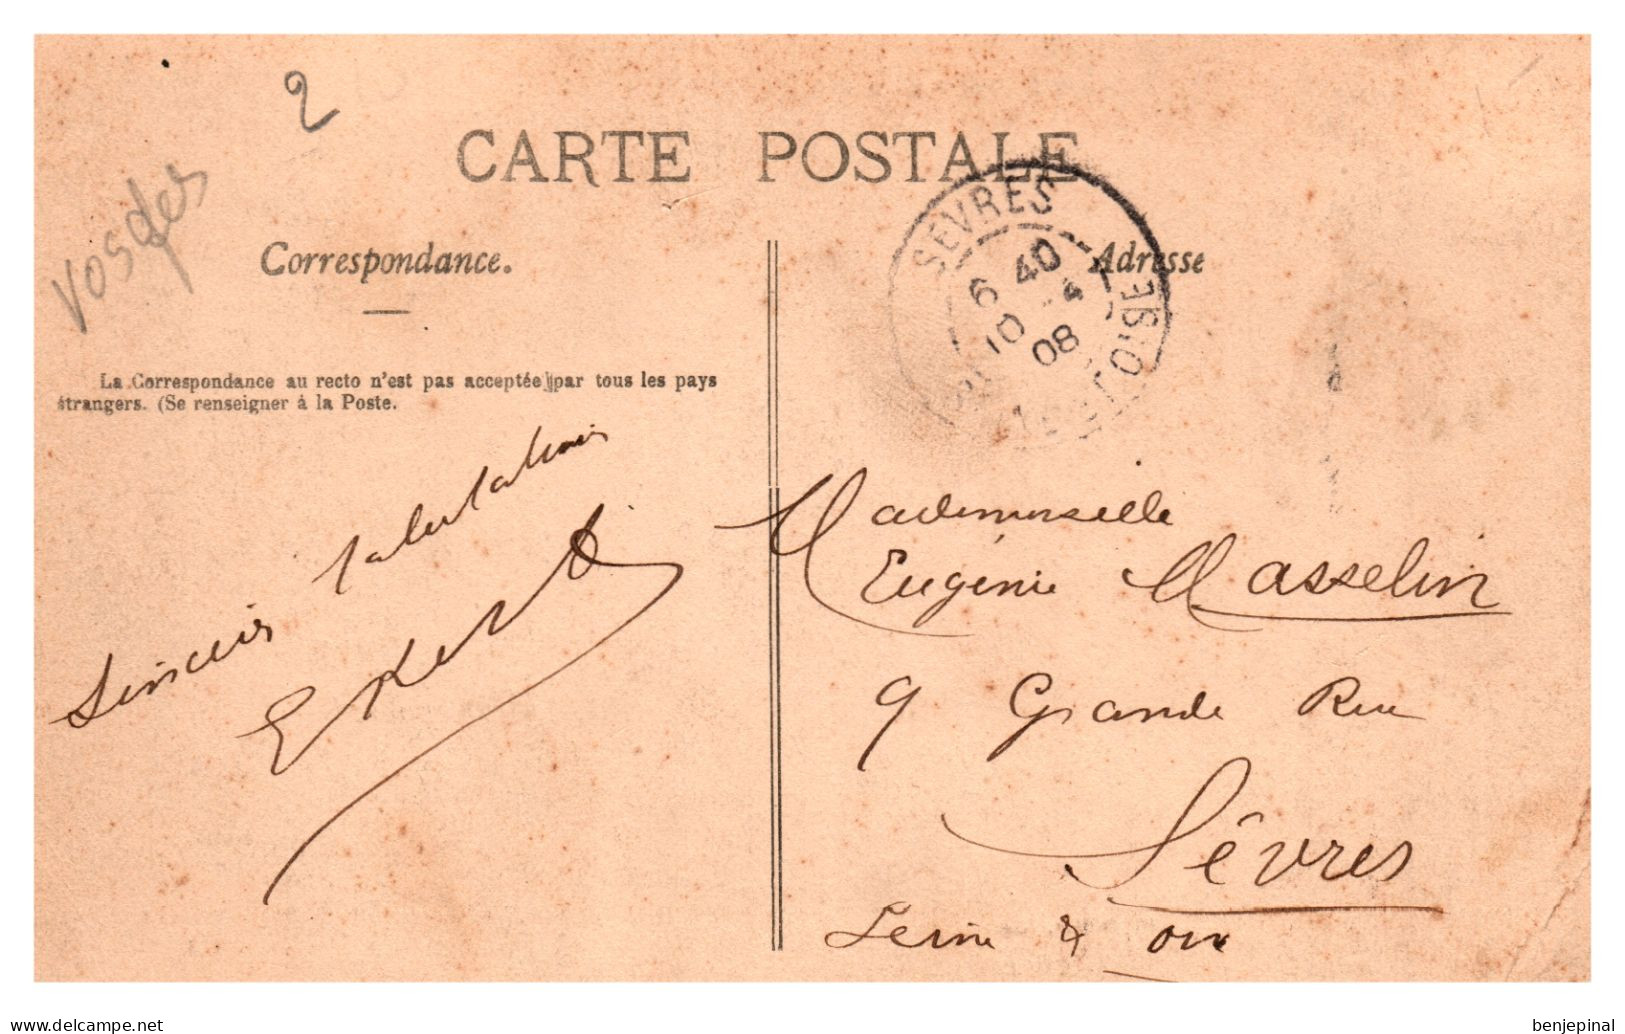 2
Vosges
CARTE POSTALE
Correspondance.
Adresse
SEVRES
6 40
10 - 4
08
SEINE-ET-OISE
La Correspondance au recto n'est pas acceptée par tous les pays
étrangers. (Se renseigner à la Poste.
Sincères salutations
Mademoiselle
Eugénie Masselin
9 Grande Rue
Sèvres
Seine & Oise
www.delcampe.net
benjepinal